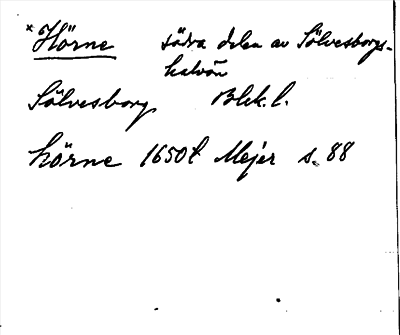 *Hörne södra delen av Sölvesborgs-
halvön
Sölvesborg Blek. l.
hörne 1650t Mejer s. 88